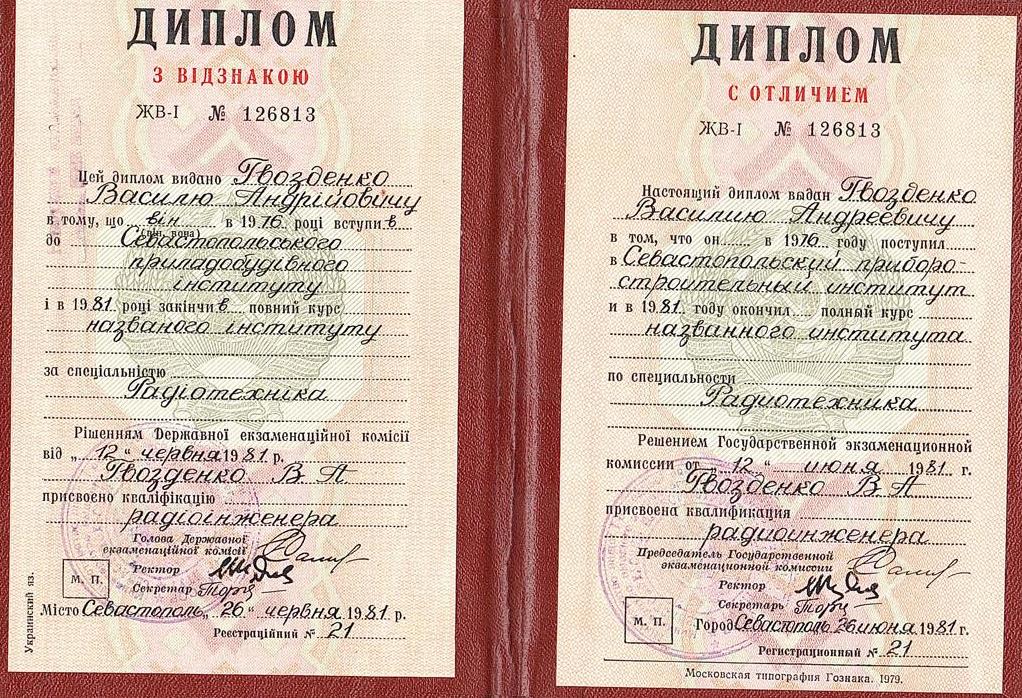 ДИПЛОМ
З ВІДЗНАКОЮ
ЖВ-І № 126813
Цей диплом видано Гвозденко
Василю Андрійовичу
в тому, що він в 1976 році вступив
(він, вона)
до Севастопольського
приладобудівного
інституту
і в 1981 році закінчив повний курс
названого інституту
за спеціальністю
Радіотехніка
Рішенням Державної екзаменаційної комісії
від „12“ червня 1981 р.
Гвозденко В А
присвоєно кваліфікацію
радіоінженера
Голова Державної
екзаменаційної комісії
Ректор
М. П.
Секретар
Місто Севастополь „26“ червня 1981 р.
Реєстраційний № 21
Украинский яз.
ДИПЛОМ
С ОТЛИЧИЕМ
ЖВ-I № 126813
Настоящий диплом выдан Гвозденко
Василию Андреевичу
в том, что он в 1976 году поступил
в Севастопольский приборо-
строительный институт
и в 1981 году окончил полный курс
названного института
по специальности
Радиотехника
Решением Государственной экзаменационной
комиссии от „12“ июня 1981 г.
Гвозденко В А
присвоена квалификация
радиоинженера
Председатель Государственной
экзаменационной комиссии
Ректор
Секретарь
М. П.
Город Севастополь 26 июня 1981 г.
Регистрационный № 21
Московская типография Гознака. 1979.